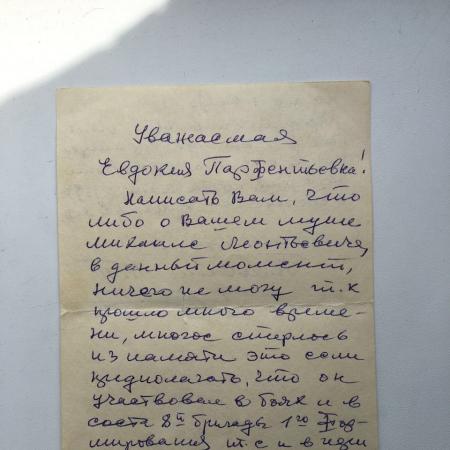 Уважаемая
Евдокия Парфентьевна!
Написать Вам, что
либо о Вашем муже
Михаиле Леонтьевиче,
в данный момент,
ничего не могу т.к
прошло много време-
ни, многое стерлось
из памяти это если
предполагать, что он
участвовал в боях и в
соста 8й бригады 1го Фор-
мирования т.е и в